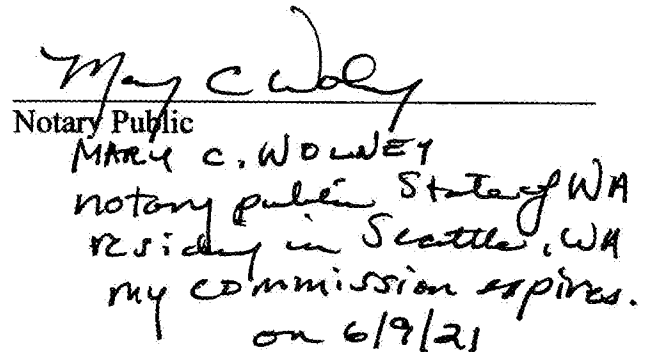 Mary C Wolney
Notary Public
MARY C. WOLNEY
notary public State of WA
residing in Seattle, WA
my commission expires.
on 6/9/21